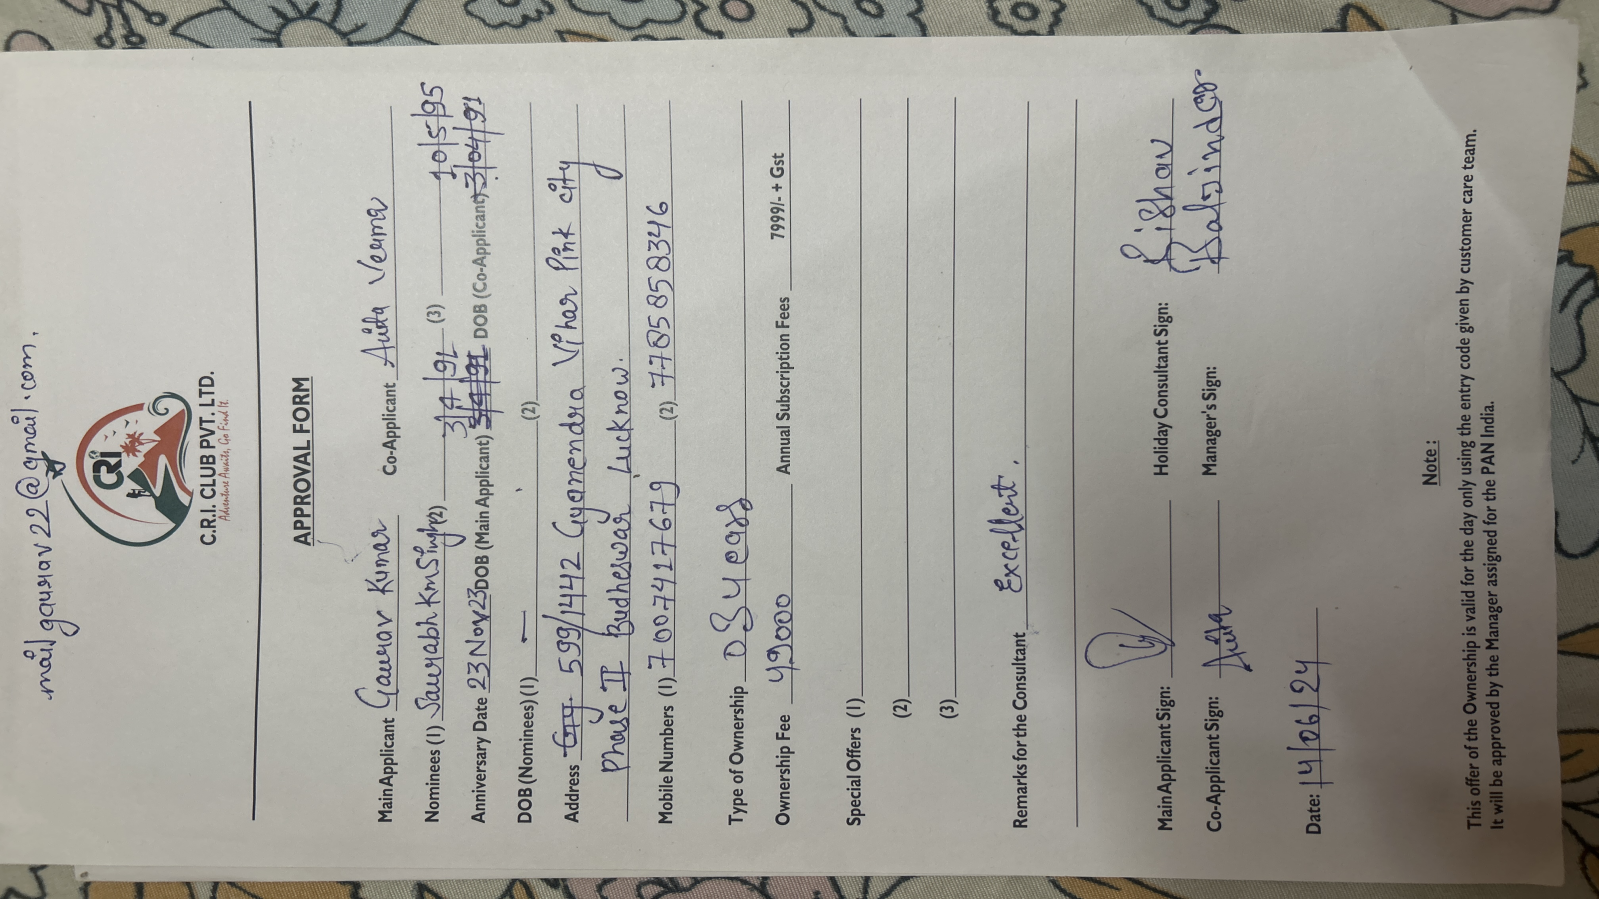 mailgaurav22@gmail.com.
CRI
C.R.I. CLUB PVT. LTD.
Adventure Awaits, Go Find It.
APPROVAL FORM
Main Applicant Gaurav Kumar Co-Applicant Anita Verma
Nominees (1) Saurabh Km Singh (2) 3/4/91 (3) 10/5/95
Anniversary Date 23 Nov 23 DOB (Main Applicant) 3/4/91 DOB (Co-Applicant) 3/04/91
DOB (Nominees) (1) — (2)
Address 599/1442 Gyanendra Vihar Pink city
Phase II Budheswar, Lucknow.
Mobile Numbers (1) 7007417679 (2) 7785858346
Type of Ownership 03 Years
Ownership Fee 49000 Annual Subscription Fees 7999/- + Gst
Special Offers (1)
(2)
(3)
Remarks for the Consultant Excellent.
Main Applicant Sign: Holiday Consultant Sign: Rishav
Co-Applicant Sign: Anita Manager's Sign: Balvinder
Date: 14/06/24
Note :
This offer of the Ownership is valid for the day only using the entry code given by customer care team.
It will be approved by the Manager assigned for the PAN India.